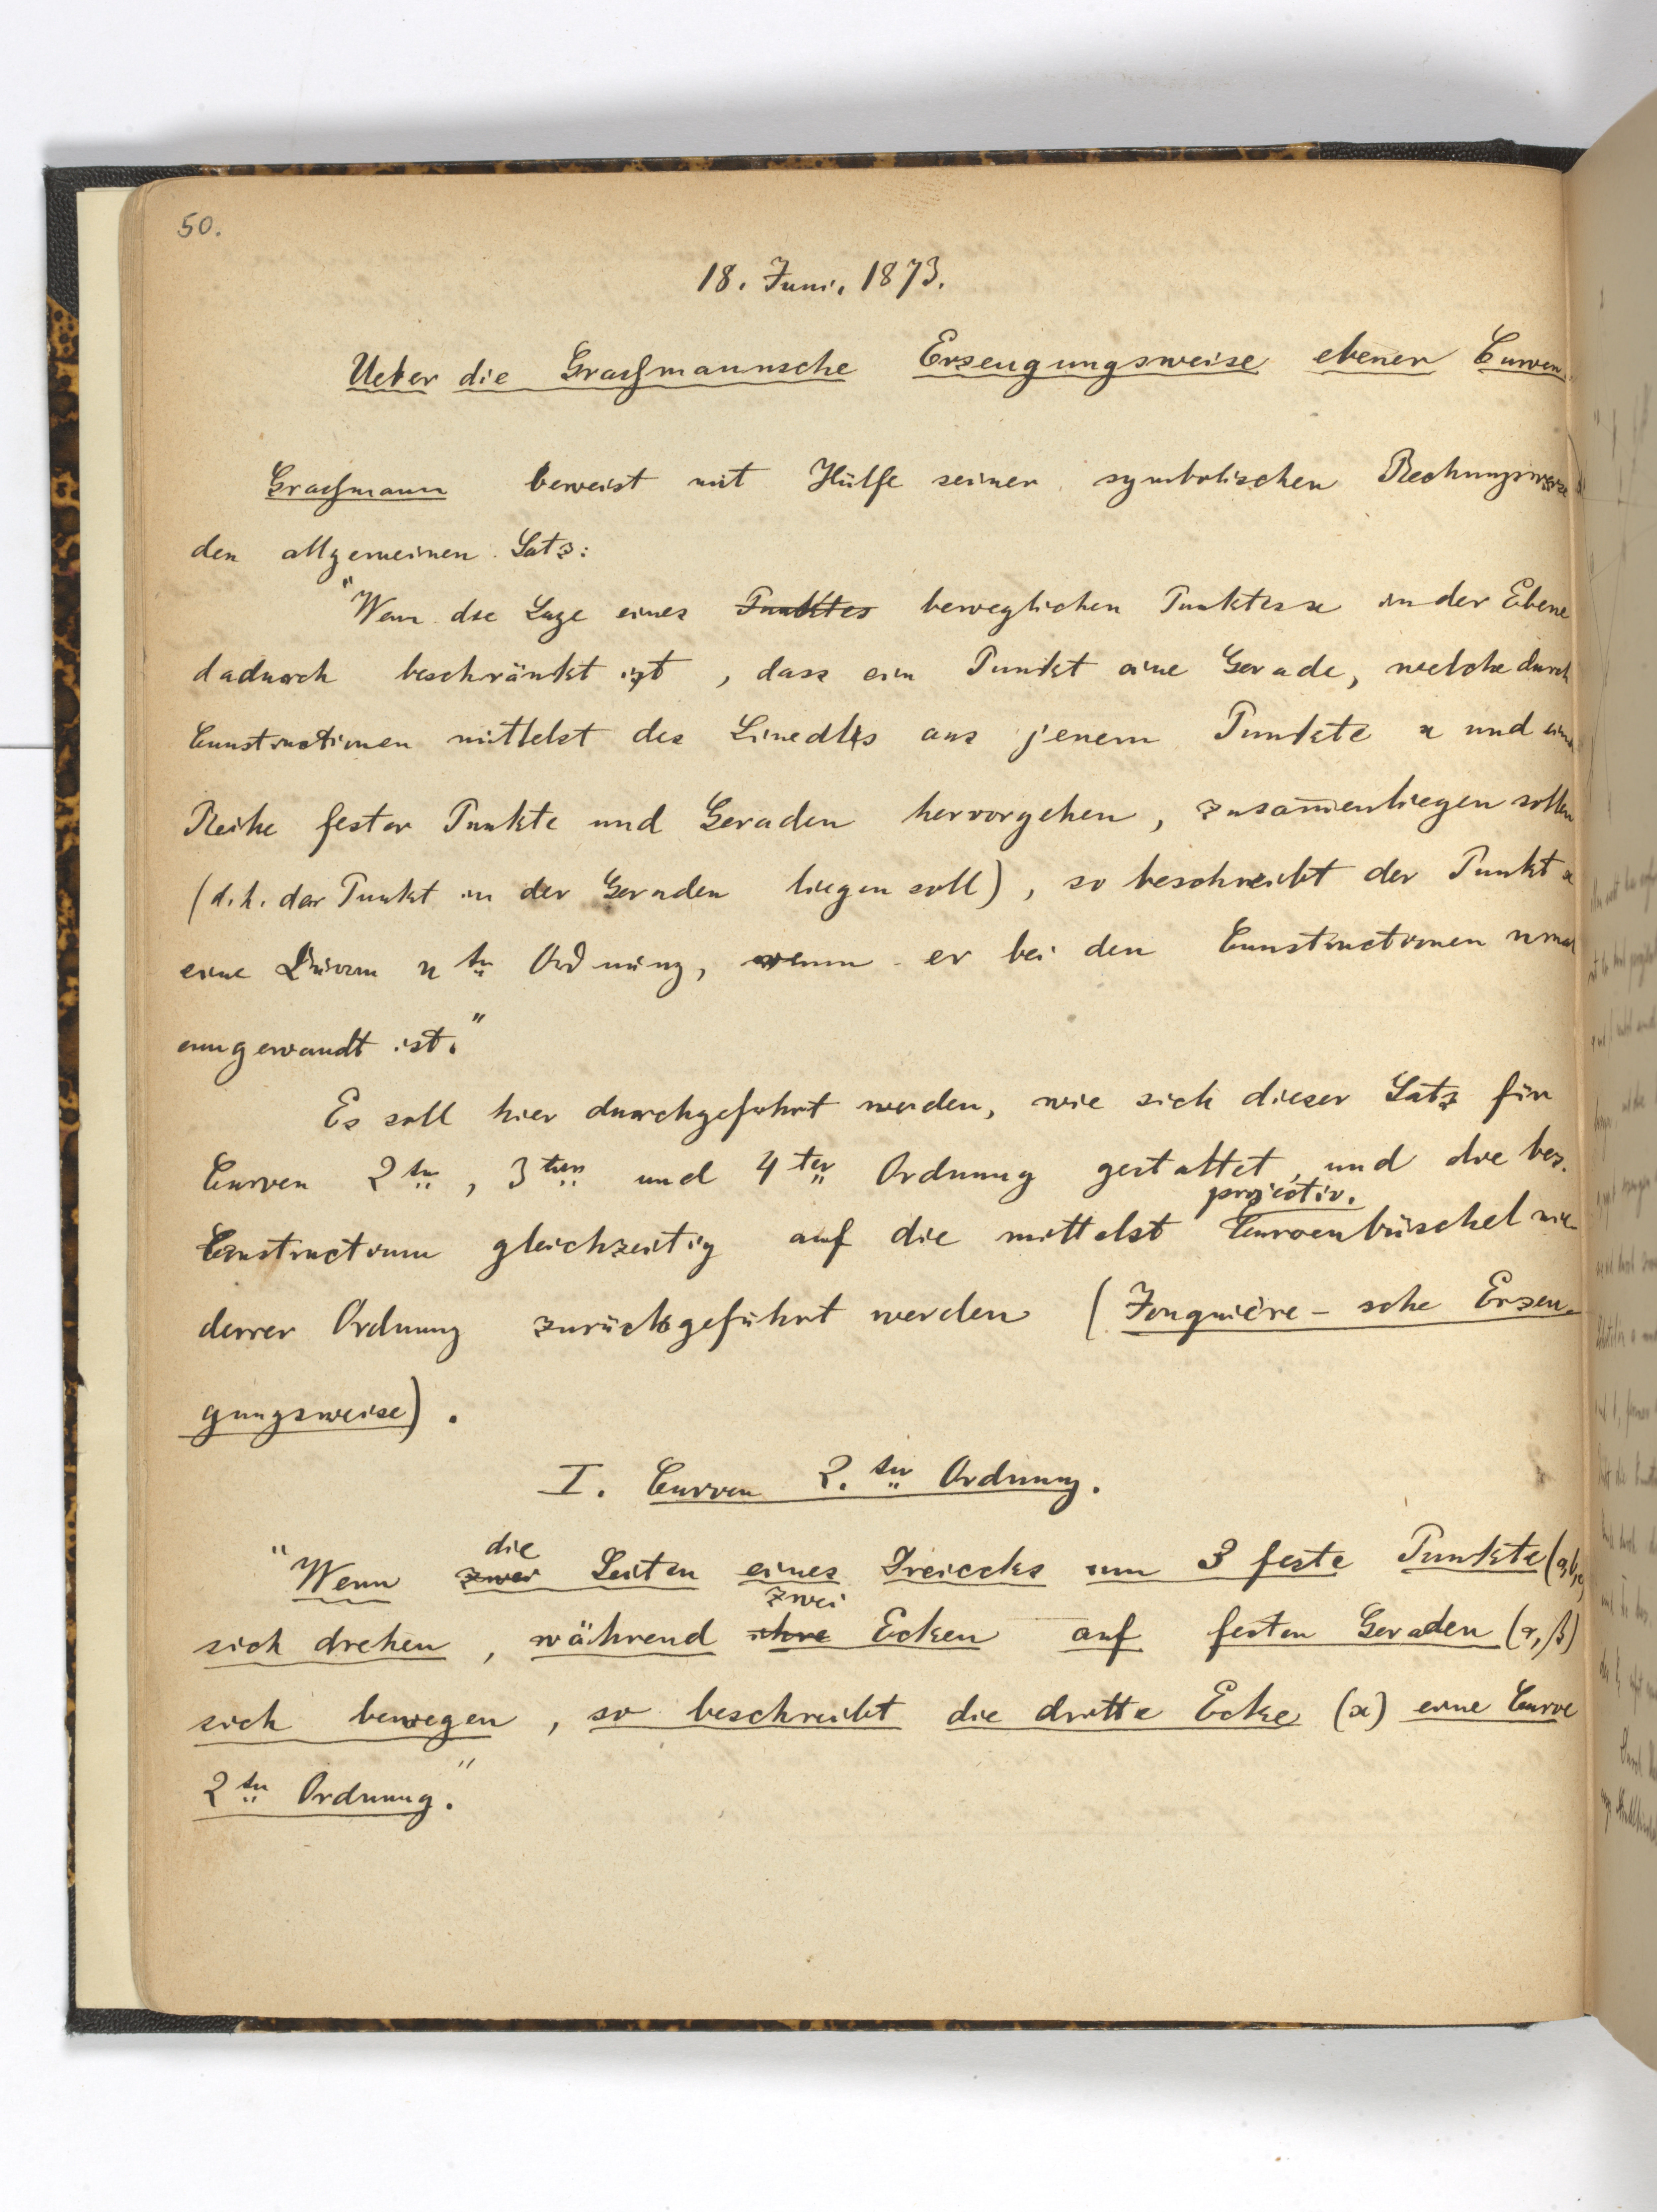 50.
18. Juni. 1873.
Ueber die Graßmannsche Erzeugungsweise ebener Curven.
Graßmann beweist mit Hülfe seiner symbolischen Rechnungsweise
den allgemeinen Satz:
"Wenn die Lage eines Punktes beweglichen Punktes x in der Ebene
dadurch beschränkt ist, dass ein Punkt eine Gerade, welche durch
Constructionen mittelst des Lineals aus jenem Punkte x und einer
Reihe fester Punkte und Geraden hervorgehen, zusam̅enliegen sollen
(d.h. der Punkt in der Geraden liegen soll), so beschreibt der Punkt x
eine n ter Ordnung, wenn er bei den Constructionen nmal
angewandt ist."
Es soll hier durchgeführt werden, wie sich dieser Satz für
Curven 2ter, 3ter und 4ter Ordnung gestaltet, und die bez.
Constructionen gleichzeitig auf die mittelst projectiv. Curvenbüschel nie-
derer Ordnung zurückgeführt werden (Jonquière-sche Erzeu-
gungsweise).
I. Curven 2.ter Ordnung.
"Wenn zwei die Seiten eines Dreiecks um 3 feste Punkte (a,b,c)
sich drehen, während ihre zwei Ecken auf festen Geraden (α, β)
sich bewegen, so beschreibt die dritte Ecke (x) eine Curve
2ter Ordnung."